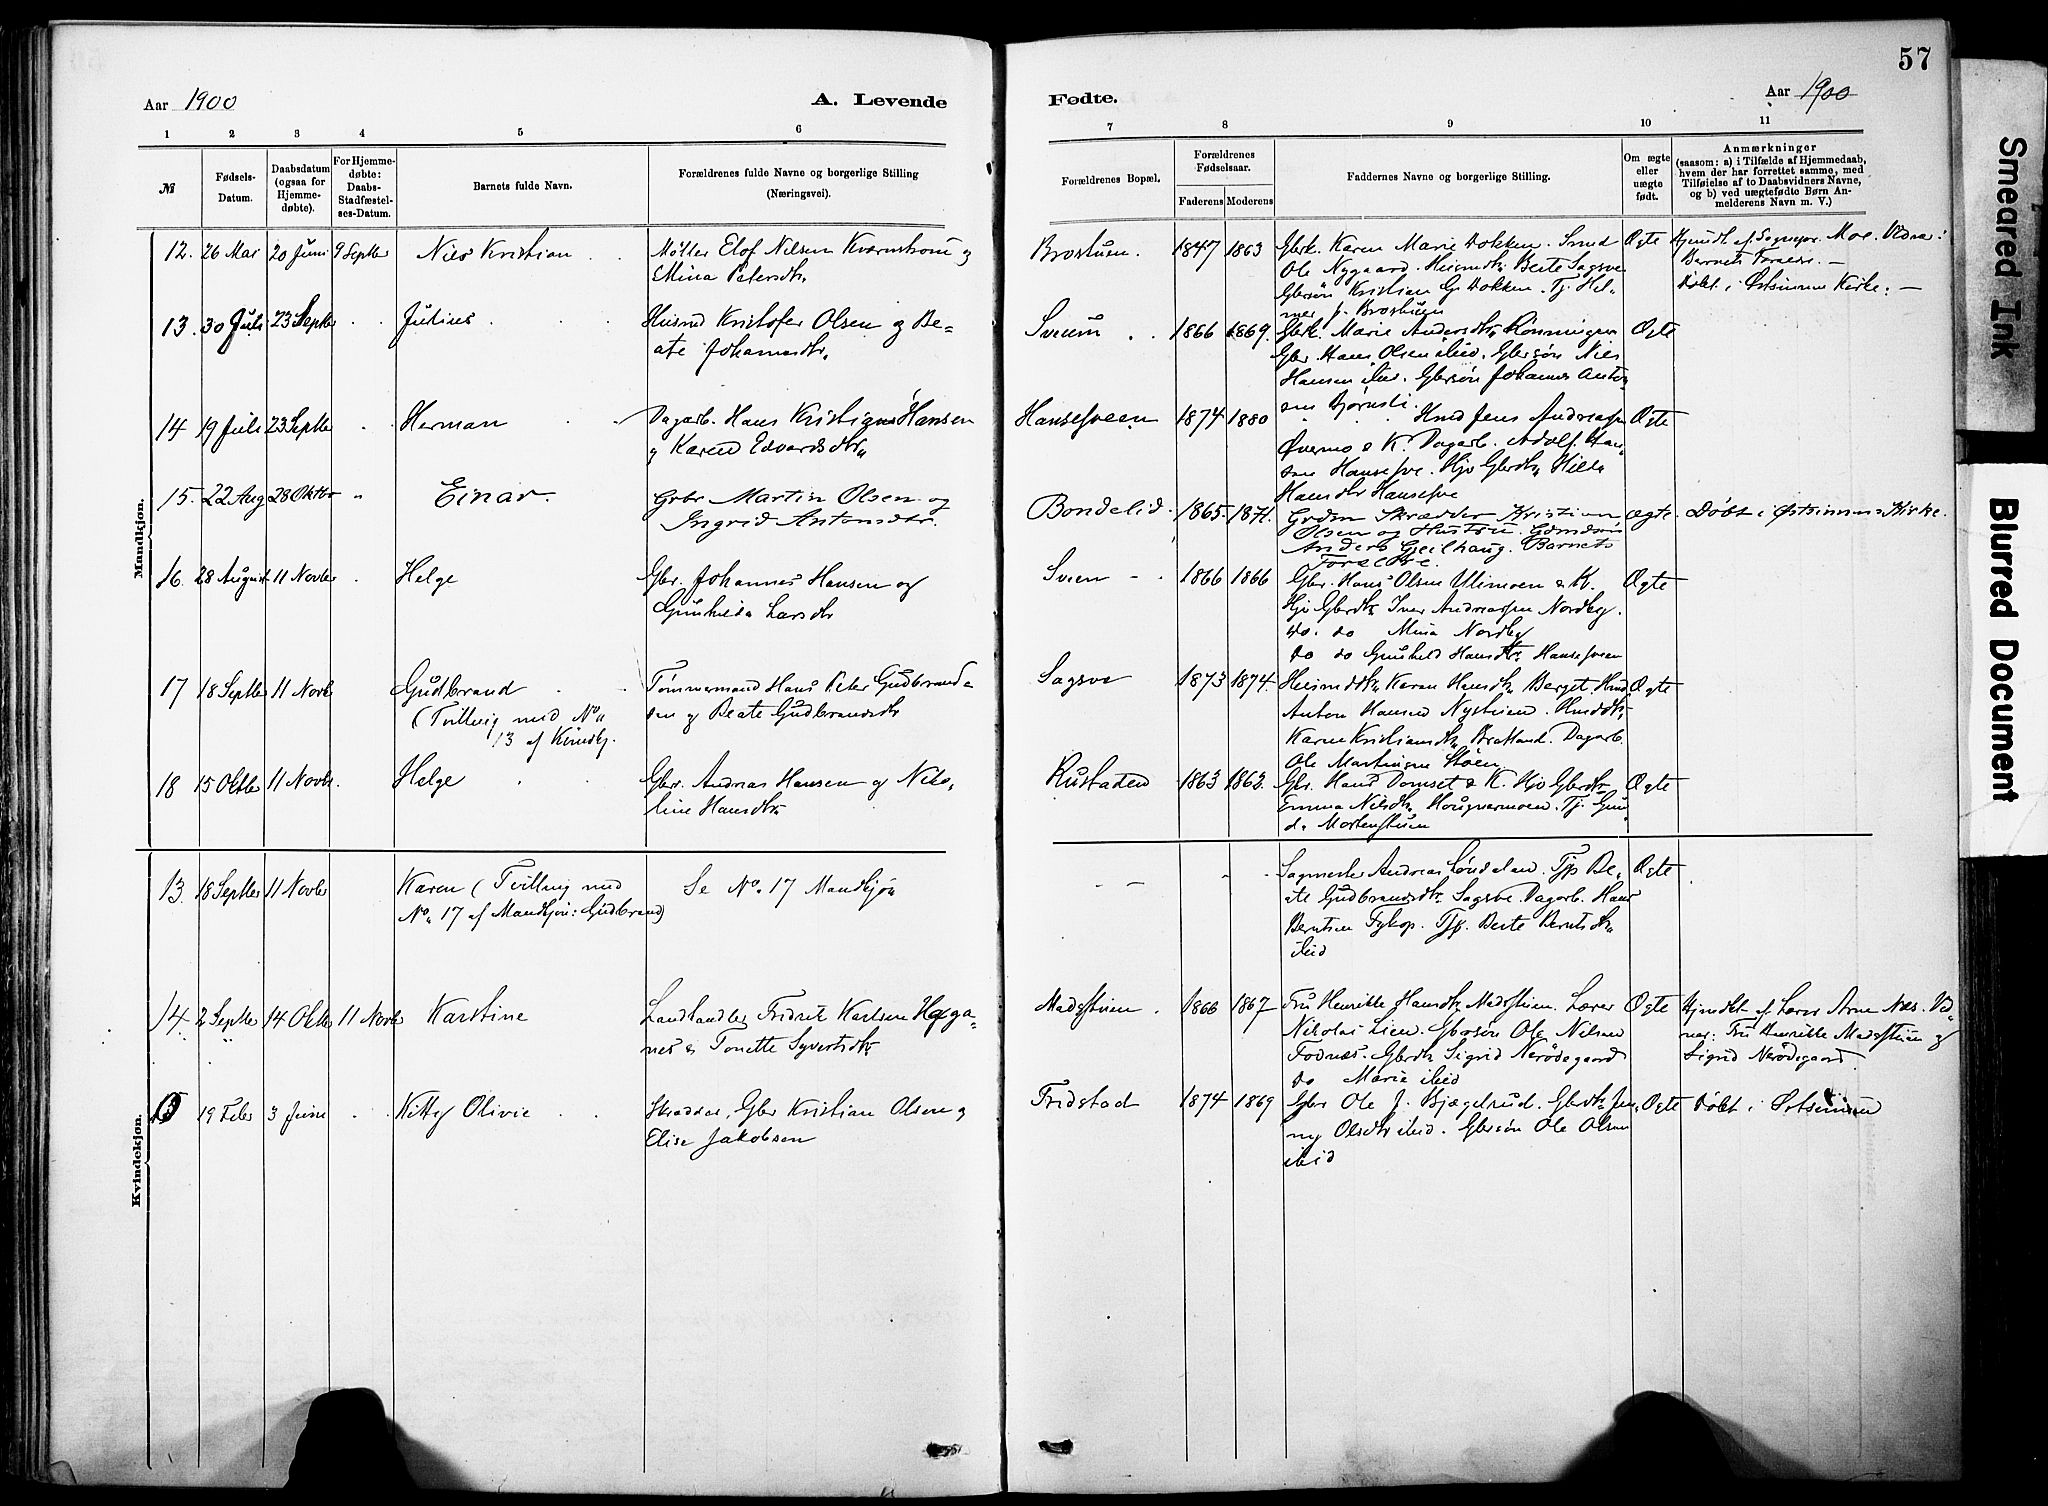 57
Aar 1900
A. Levende
Fødte.
Aar 1900
1 2 3 4 5 6 7 8 9 10 11
№
Fødsels-
Datum.
Daabsdatum
(ogsaa for
Hjemme-
døbte).
For Hjemme-
døbte:
Daabs-
Stadfæstel-
ses-Datum.
Barnets fulde Navn.
Forældrenes fulde Navne og borgerlige Stilling
(Næringsvei).
Forældrenes Bopæl.
Forældrenes
Fødselsaar.
Faderens Moderens
Faddernes Navne og borgerlige Stilling.
Om ægte
eller
uægte
født.
Anmærkninger
(saasom: a) i Tilfælde af Hjemmedaab,
hvem der har forrettet samme, med
Tilføielse af to Daabsvidners Navne,
og b) ved uægtefødte Børn An-
melderens Navn m. V.)
Mandkjøn.
12. 26 Mai 20 Juni 9 Septbr Nils Kristian
Møller Elof Nilsen Kvarnstrøm og
Mina Petersdtr
Brostuen. 1847 1863
Gbrk. Karen Marie Dokken. Smed
Ole Nygaard. Husmdtr Berte Sagsve
Gbrsøn Kristian G. Dokken. Tj. Hel-
mer J. Brostuen
Ægte
Hjmdbt af Sognepr. Moe. Vidner:
Barnets Forældre. —
Døbt i Østsinnen Kirke. —
13. 30 Juli 23 Septbr Julius
Husmd Kristofer Olsen og Be-
ate Johannesdtr
Sveum 1866 1869.
Gbrk. Marie Andersdtr Rønningen
Gbr. Hans Olsen ibid. Gbrsøn Nils
Hansen ibid. Gbrsøn Johannes Anton-
sen Bjørnsli.
Ægte
14 19 Juli 23 Septbr Herman
Dagarb. Hans Kristian Hansen
og Karen Edvardsdtr
Hansesveen 1874 1880
Husmd Jens Andreassen
Øvermo & K. Dagarb. Adolf Han-
sen Hansesve. Hjv Gbrdtr Hilda
Hansdtr Hansesve
Ægte
15. 22 Aug 28 Oktbr Einar.
Gbr Martin Olsen og
Ingrid Antonsdtr.
Bondelid. 1865. 1871.
Gbrdm Skrædder Kristian
Olsen og Hustru. Gbrmdsøn
Anders Geilhaug. Barnets
Forældre.
Ægte. Døbt i Østsinnens Kirke.
16. 28 August 11 Novbr Helge
Gbr. Johannes Hansen og
Gunhilda Larsdtr
Sveen 1866 1866
Gbr. Hans Olsen Ulimoen & K.
Hjv Gbrdtr Iver Andreassen Nordby.
do. do Mina Nordby
do do Gunhild Hansdtr Hansesveen
Ægte
17 18 Septbr 11 Novbr Gudbrand
(Tvilling med No.
13 af Kvindkj.
Tømmermand Hans Peter Gudbrand-
sen og Beate Gudbrandsdtr
Sagsve 1873 1874.
Husmdtr Karen Hansdtr Berget. Husmd
Anton Hansen Nystuen. Husmdtr
Karen Kristiansdtr Bratland. Dagarb.
Ole Martinsen Støen
Ægte
18 15 Oktbr 11 Novbr. Helge
Gbr. Andreas Hansen og Niko-
line Hansdtr
Rustaden 1863 1863.
Gbr. Hans Domset & K. Hjv Gbrdtr
Emma Nilsdtr Hougnermoen. Tj. Gun-
da Mortenstuen
Ægte
Kvindekjøn.
13. 18 Septbr 11 Novbr Karen (Tvilling med
No. 17 af Mandkjøn: Gudbrand)
Se No. 17 Mandkjøn
Sagmester Andreas Løndalen. Tjp Be-
ate Gudbrandsdtr Sagsve. Dagarb. Hans
Berntsen Fykop. Tjp. Berte Berntsdtr
ibid
Ægte
14. 2 Septbr 14 Oktbr 11 Novbr Karstine
Landhandler Fridrik Karlsen Haga-
næs & Tonette Syvertsdtr
Madsstuen. 1866 1867
Fru Henrikke Hansdtr Madsstuen. Lærer
Nikolai Lien. Gbrsøn Ole Nilsen
Fodnæs. Gbrdtr Sigrid Nerødegaard
do Marie ibid
Ægte
Hjmdbt af Lærer Arne Næs. Vid-
ner: Fru Henrikke Madsstuen og
Sigrid Nerødegaard.
15 19 Febr 3 Juni Kitty Olivie
Skrædder, Gbr Kristian Olsen og
Elise Jakobsen
Fridstad 1874 1869
Gbr Ole J. Bjægelrud. Gbrdtr Jen-
ny Olsdtr ibid. Gbrsøn Ole Olsen
ibid
Ægte Døbt i Østsinnen
Smeared Ink
Blurred Document